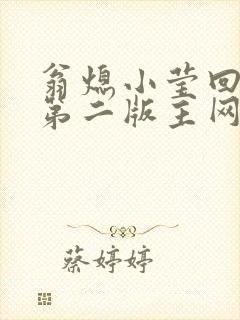 翁熄小莹回
第二版主网
蔡婷婷